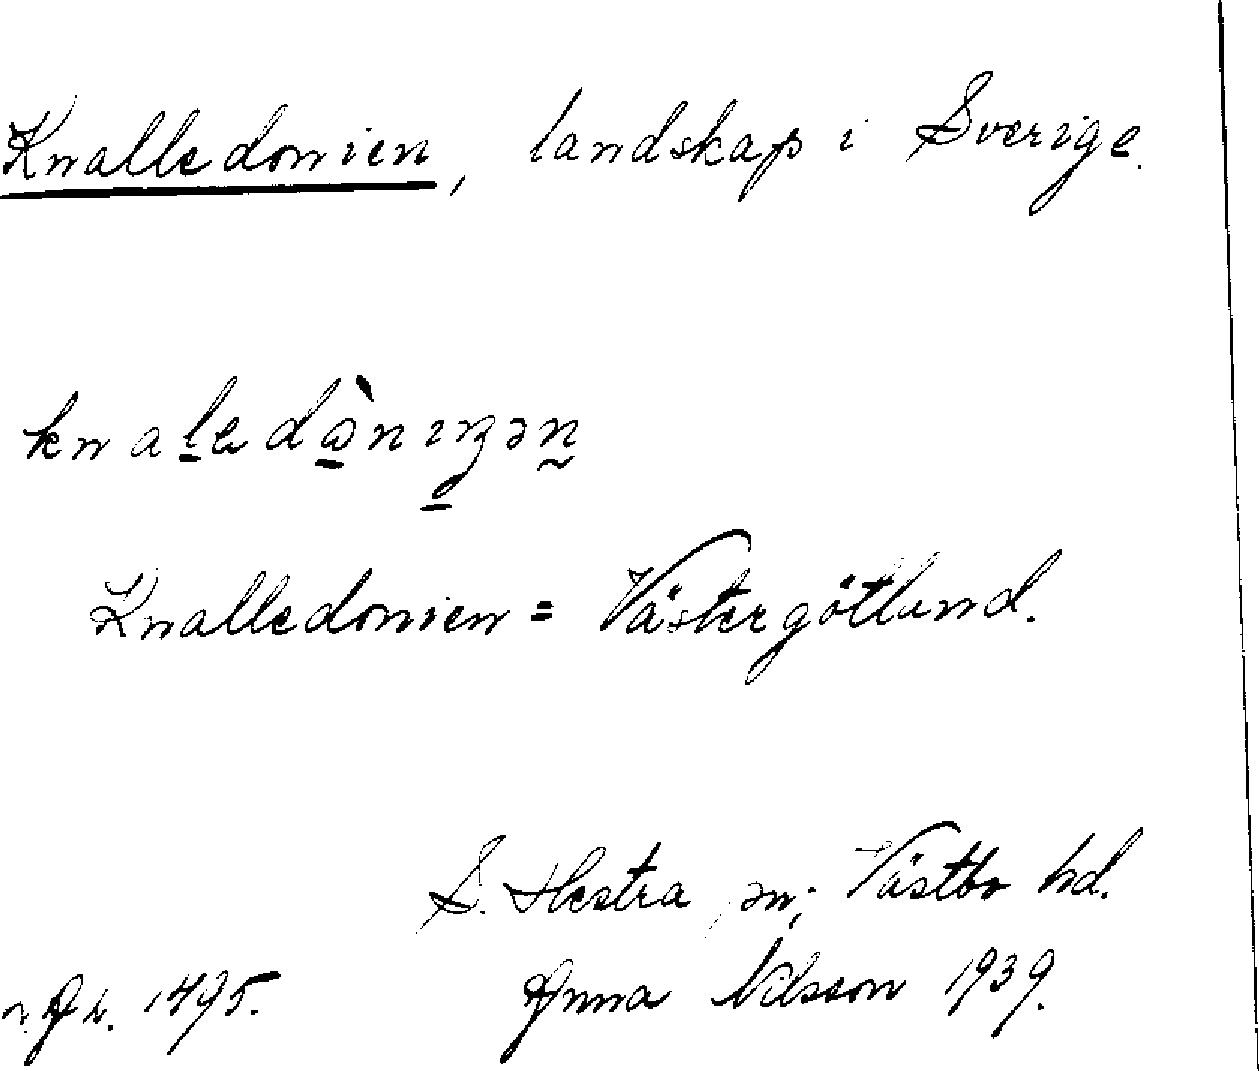 Knalledonien, landskap i Sverige.
Knalledonien = Västergötland.
S. Hestra sn; Västbo hd.
1495. Anna Nilsson 1939.